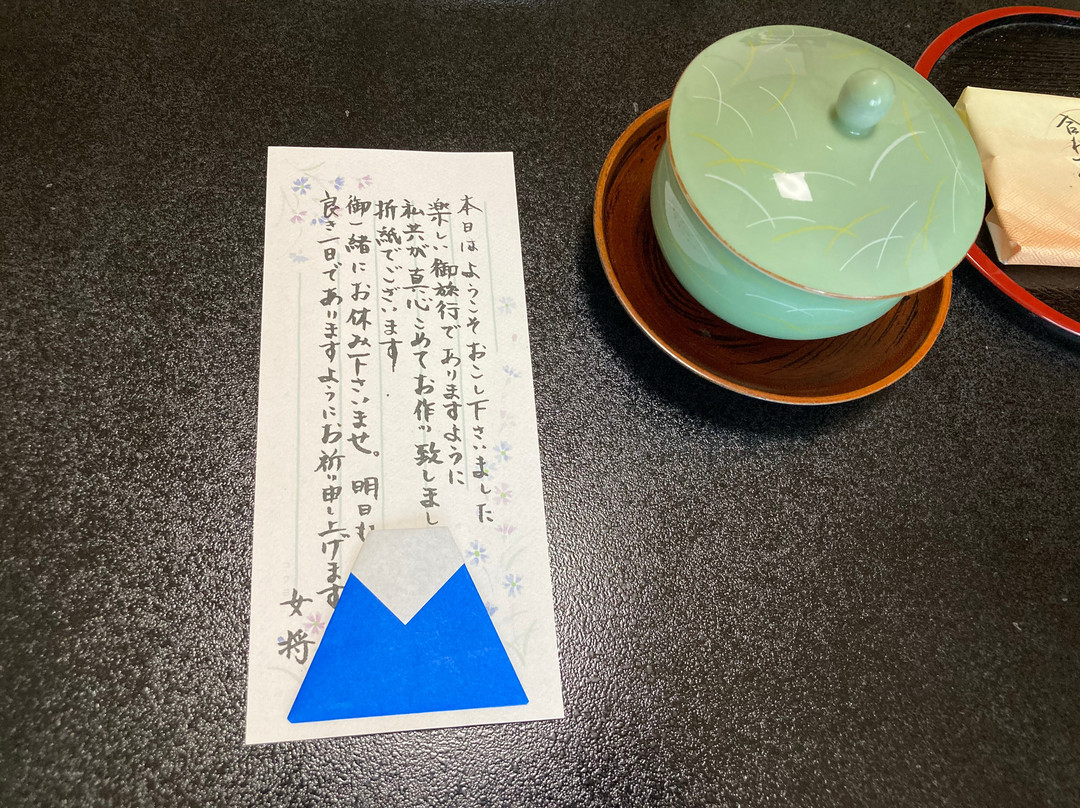 本日はようこそおこし下さいました
楽しい御旅行でありますように
私共が真心こめてお作り致しまし
折紙でございます
御一緒にお休み下さいませ。明日も
良き一日でありますようにお祈り申し上げます
女将